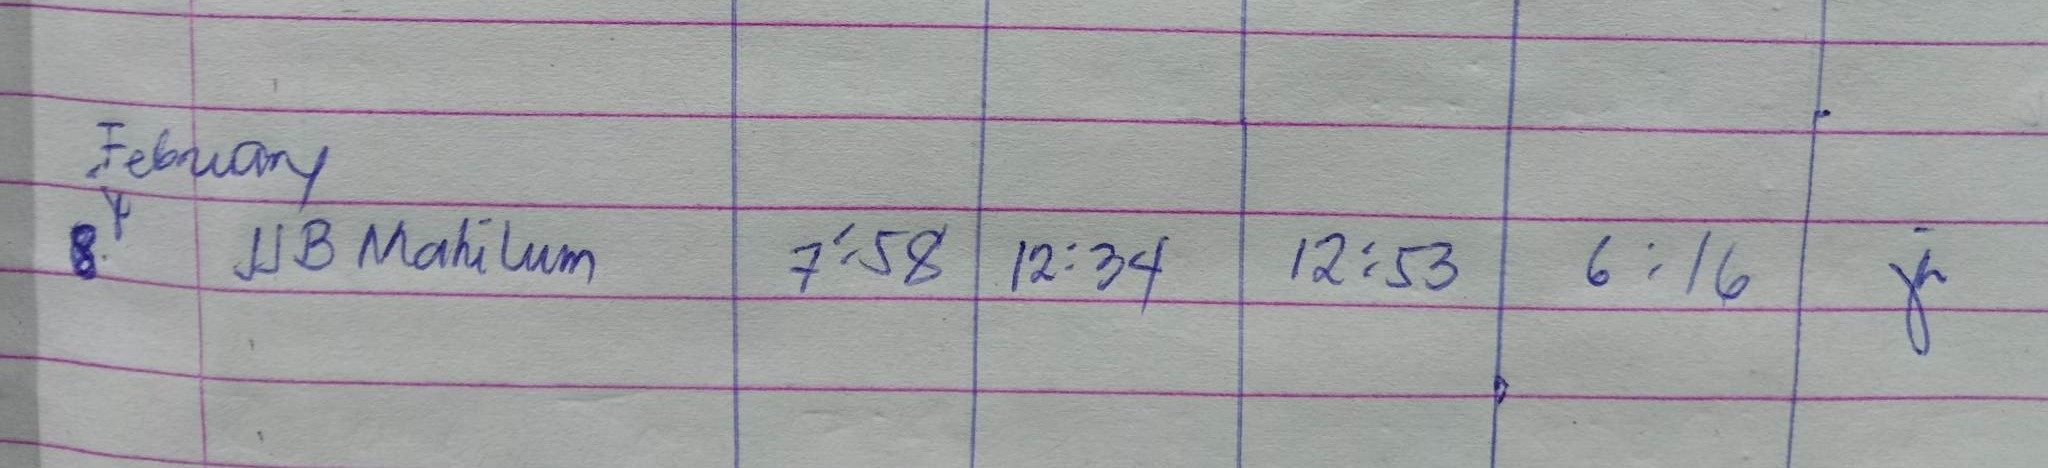 February
8. JJB Mahilum 7:58 12:34 12:53 6:16